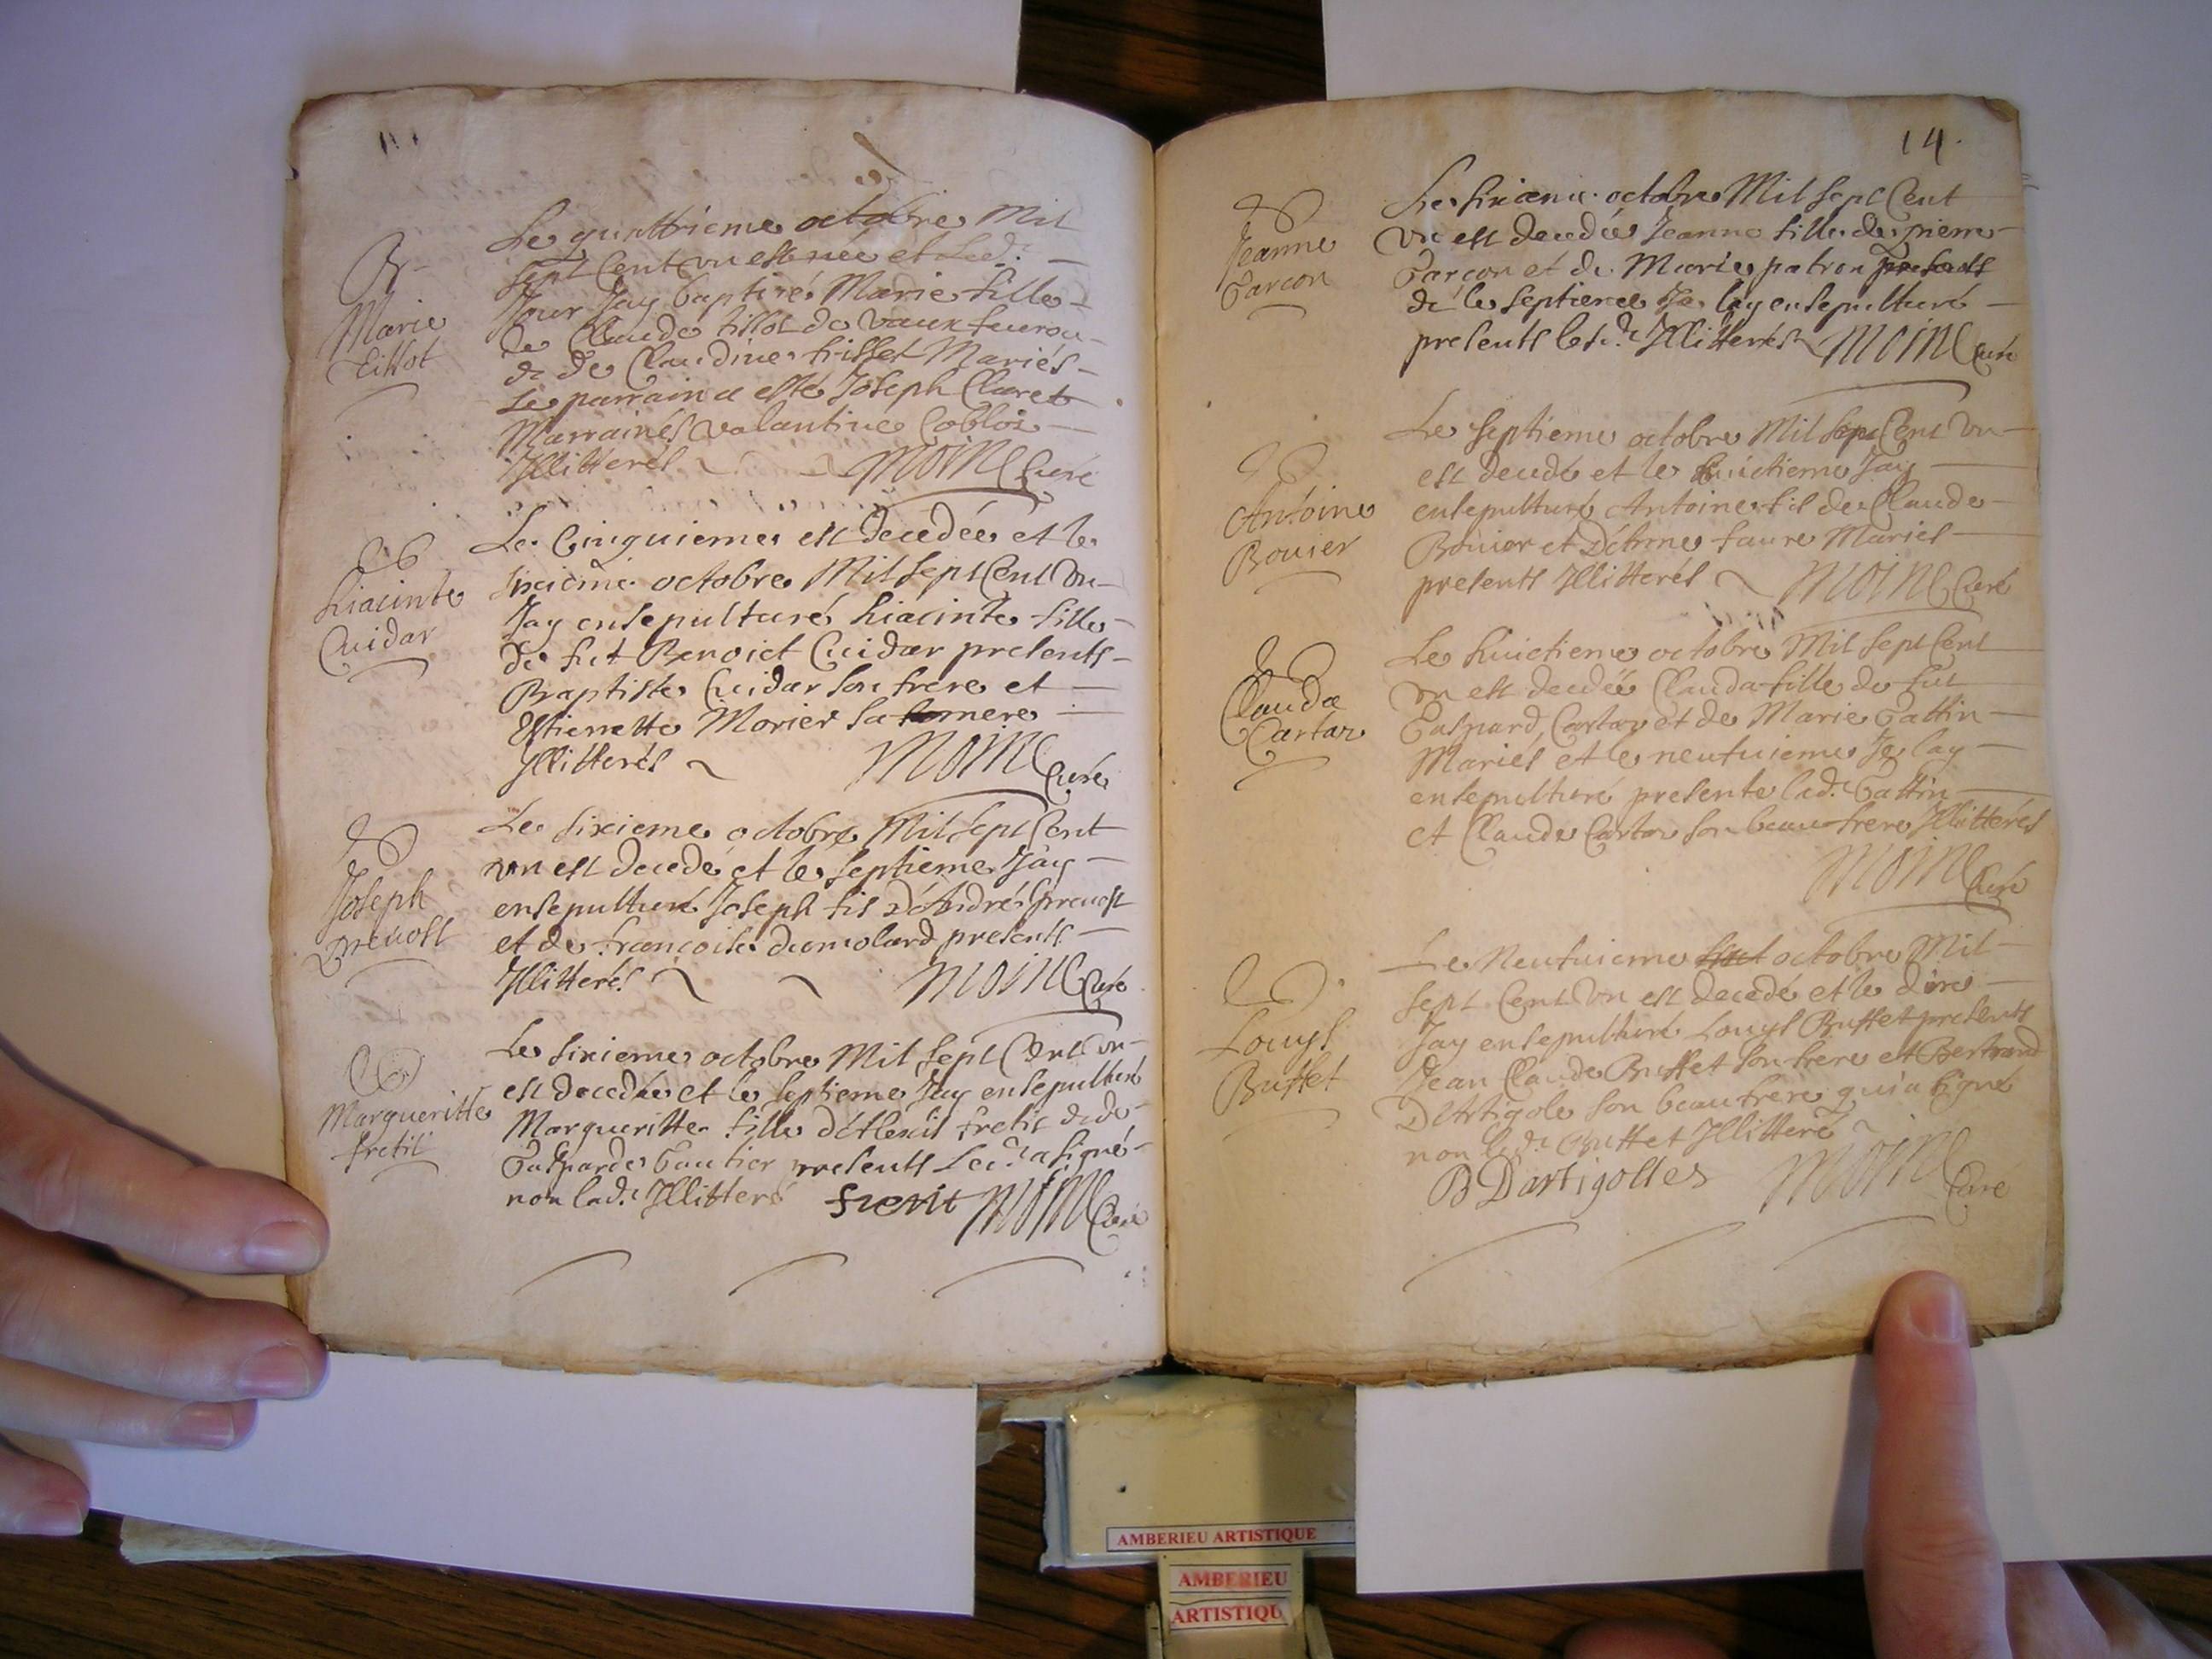 B
Marie
tillot
Le quattrieme octobre Mil
sept Cent un est née et led.
Jour Jay baptizé Marie fille
de Claude tillot de vaux fevrou
& de Claudine frisset Mariés
Le parrain a esté Joseph Claret
Marraine valantine Coblois
Illitterés MOINE Curé
hiacinte
Cuidar
Le Cinquieme est decedée et le
sixieme octobre Mil sept Cent un
Jay ensepulturé hiacinte fille
de fut Benoict Cuidar presents
Baptiste Cuidar son frere et
Estiennette Morier sa mere
Illitterés MOINE Curé
Joseph
prevost
Le sixieme octobre Mil sept Cent
un est decedé et le septieme Jay
ensepulturé Joseph fis D'André prevost
et de francoise dumolard presents
Illitterés MOINE Curé
Margueritte
fretit
Le sixieme octobre Mil sept Cent un
est decedée et le septieme Jay ensepulturé
Margueritte fille d'Alexis & de
Gasparde Gautier presents Led. a signé
non lad. Illitteré MOINE Curé
14.
Jeanne
Garcon
Le sixieme octobre Mil sept Cent
un est decedée Jeanne fille de pierre
Garcon et de Marie patron presents
& le septieme Je lay ensepulturé
presents lesd. Illitterés MOINE Curé
Antoine
Bouier
Le septieme octobre Mil sept Cent un
est decedé et le huictieme Jay
ensepulturé Antoine fis de Claude
Bouier et D'Anne faure Mariés
presents Illitterés MOINE Curé
Clauda
Cartar
Le huictieme octobre Mil sept Cent
un est decedée Clauda fille de fut
Gaspard Cartar et de Marie Gattin
Mariés et le neufuieme Je lay
ensepulturé presente lad. Gattin
et Claude Cartar son beau frere Illitterés
MOINE Curé
Louys
Buffet
Le Neufuieme octobre Mil
sept Cent un est decedé et le dixe
Jay ensepulturé Louys Buffet presents
Jean Claude Buffet son frere et Bertrand
D'Artigole son beau frere qui a signé
non led. Buffet Illitteré
B Dartigolles MOINE
Curé
AMBERIEU ARTISTIQUE
AMBERIEU
ARTISTIQU